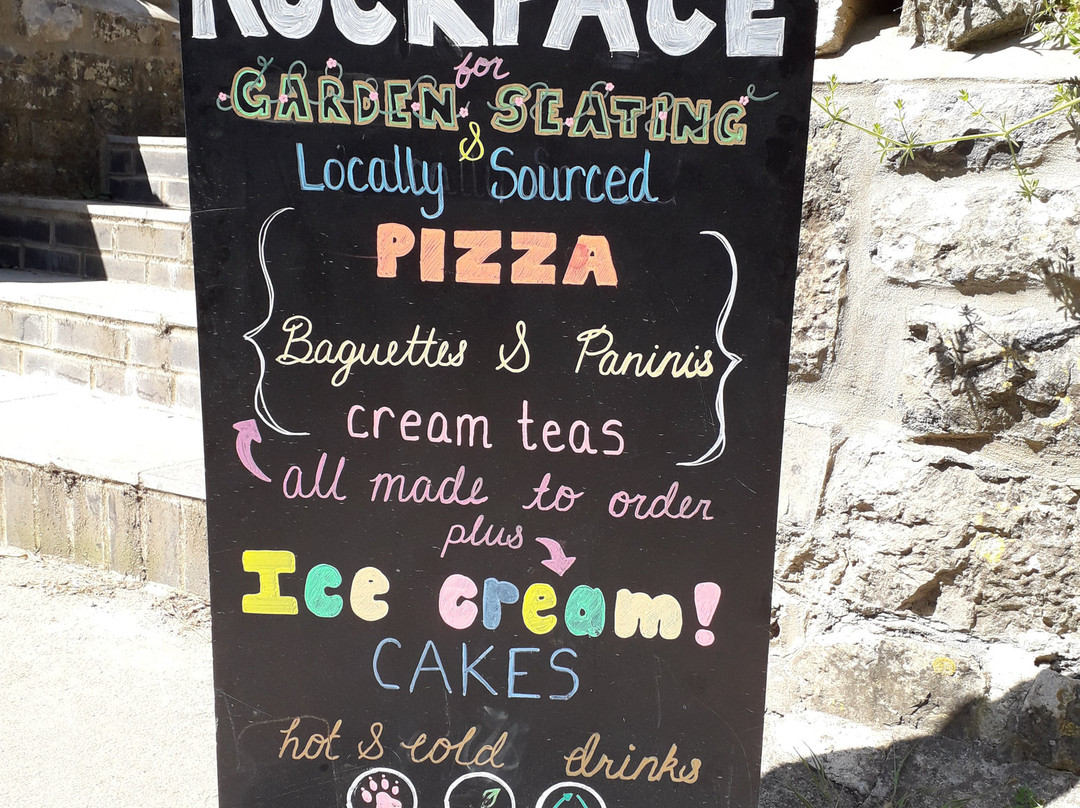 ROCKFACE
for
GARDEN SEATING
&
Locally Sourced
PIZZA
Baguettes & Paninis
cream teas
all made to order
plus
Ice cream!
CAKES
hot & cold drinks